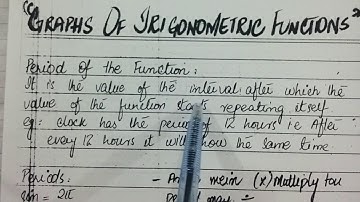 "GRAPHS OF TRIGONOMETRIC FUNCTIONS"
Period of the Function:
It is the value of the interval after which the
value of the function starts repeating itself
eg: clock has the period of 12 hours i.e After
every 12 hours it will show the same time.
Periods: mein (x) Multiply tou
Sin = 2π